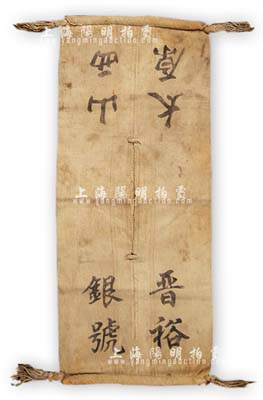 太原
山西
晋裕
銀號
上海陽明拍賣
yangmingauction.com
上海陽明拍賣
www.yangmingauction.com
上海陽明拍賣
www.yangmingauction.com